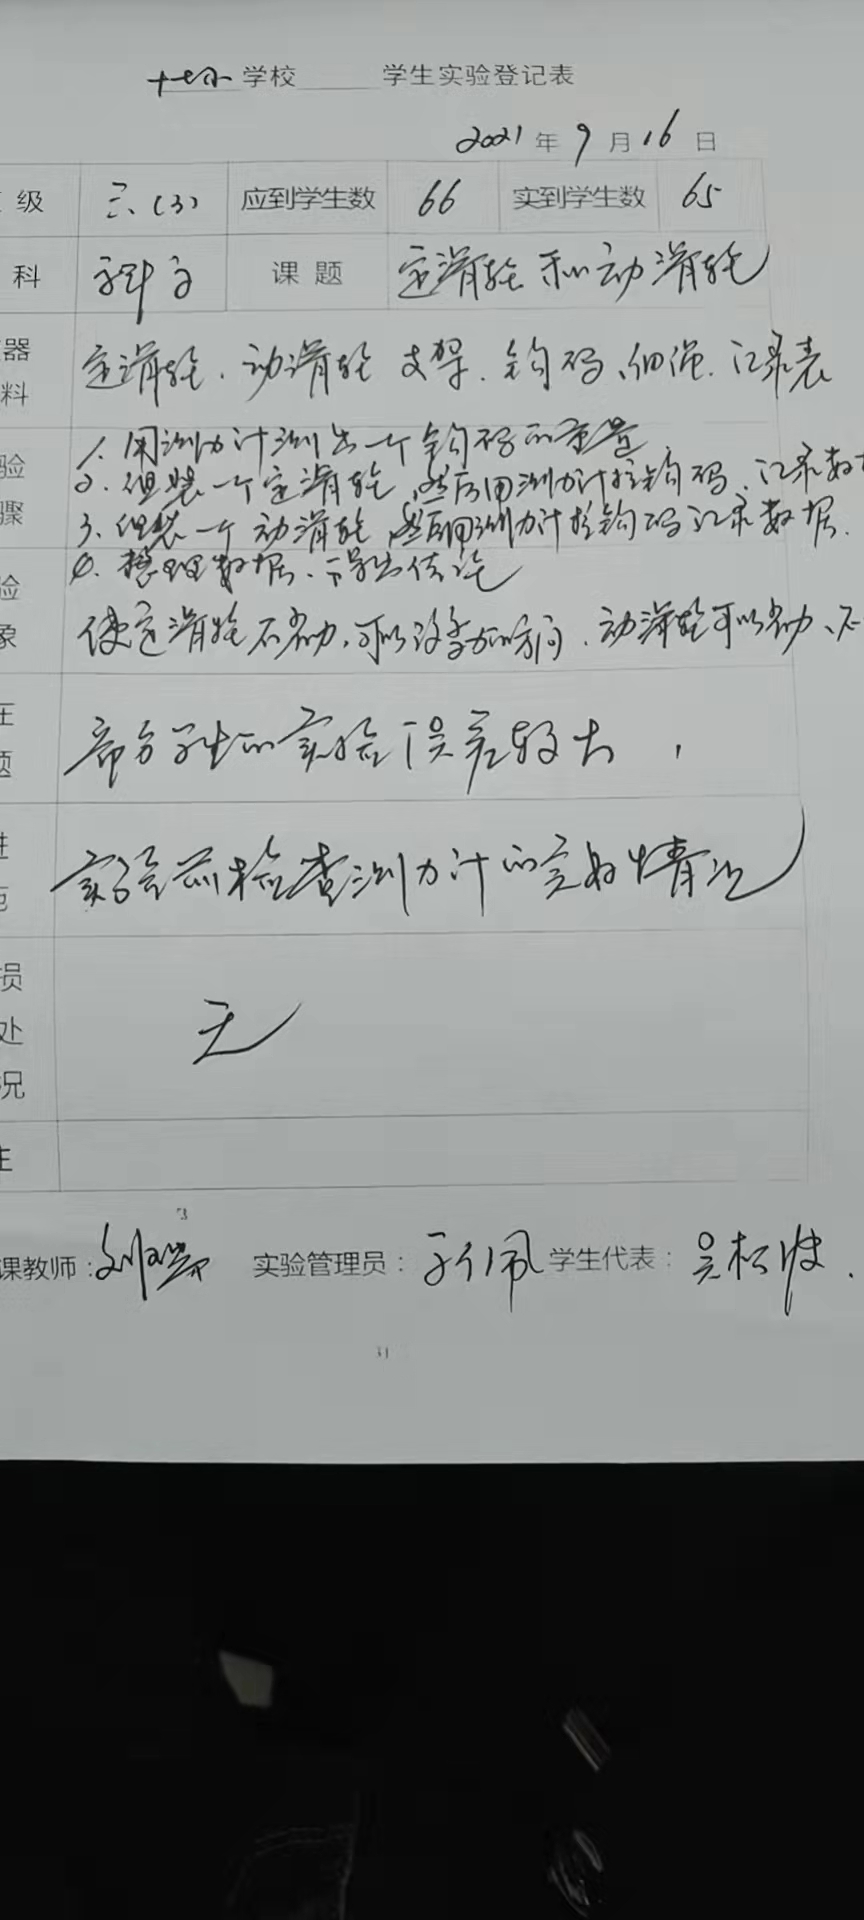 十七小学校 学生实验登记表
2021年9月16日
级 三、(3) 应到学生数 66 实到学生数 65
科 科学 课题 定滑轮和动滑轮
器料 定滑轮、动滑轮 支架、钩码、细绳、记录表
验 1、用测力计测出一个钩码的重量
2、组装一个定滑轮,然后用测力计拉钩码、记录数据
骤 3、组装一个动滑轮,然后用测力计拉钩码记录数据.
验 4、整理数据、得出结论
象 使定滑轮不省力,可以改变力的方向、动滑轮可以省力、不
在题 部分学生的实验误差较大,
进 实验前检查测力计的完好情况
损
处 无
况
注
课教师: 实验管理员: 学生代表:吴松波
31